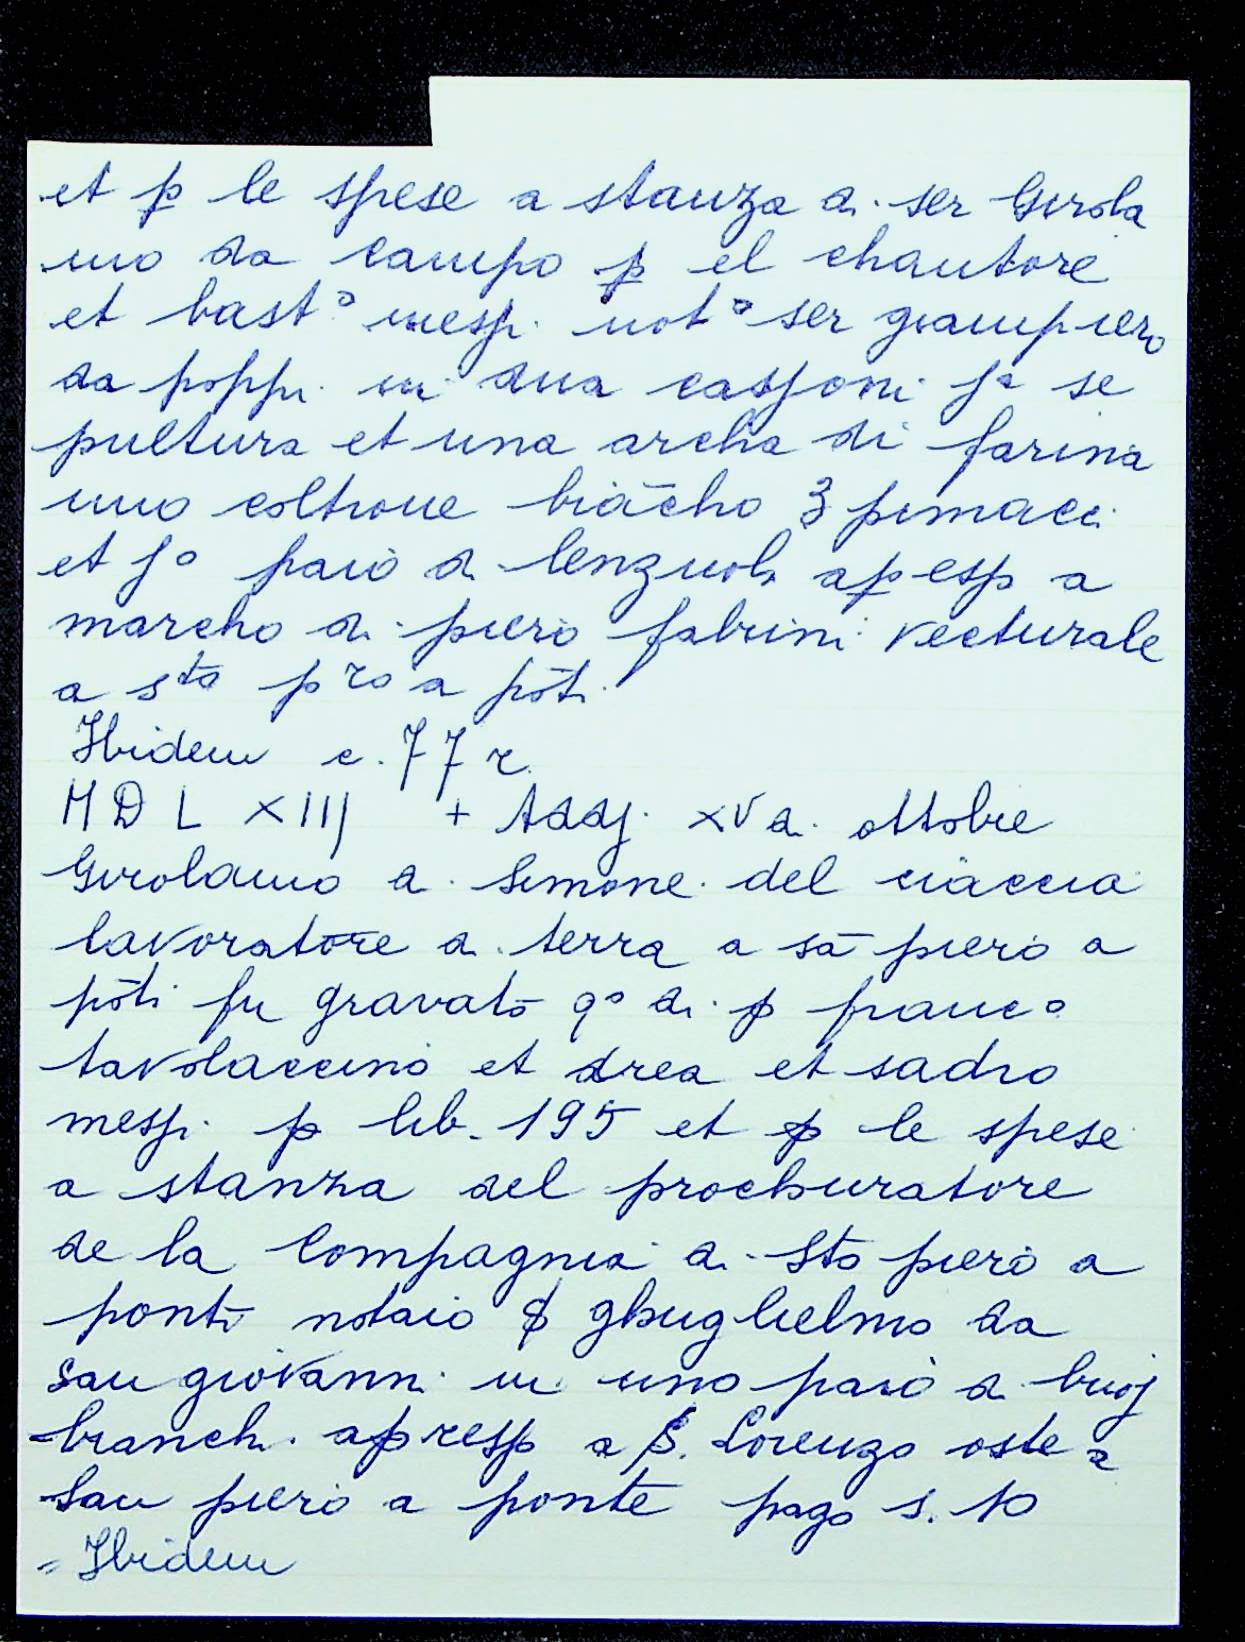 et p le spese a stanza di ser Girola
mo da campo p el chantore
et bast° mesp. not° ser giampiero
da poppi in dua cassoni ja se
pultura et una archa di farina
uno coltrone biācho 3 pimacci
et jo paio di lenzuoli apesp a
marcho di piero fabrini vecturale
a sto pro a pōti.
Ibidem c. 77 r.
MDLXIIJ + Addj. XV di ottobre
Girolamo di Simone del ciaccia
lavoratore di terra a sā piero a
pōti fu gravato qo di p franco
tavolaccino et drea et sadro
mesp. p lib. 195 et p le spese
a stanza del prochuratore
de la Compagnia di Sto piero a
ponti notaio ꞩ ghuglielmo da
san giovanni in uno paio di buoj
branchi. apresp a S. Lorenzo oste a
San piero a ponte pago s. 10
= Ibidem